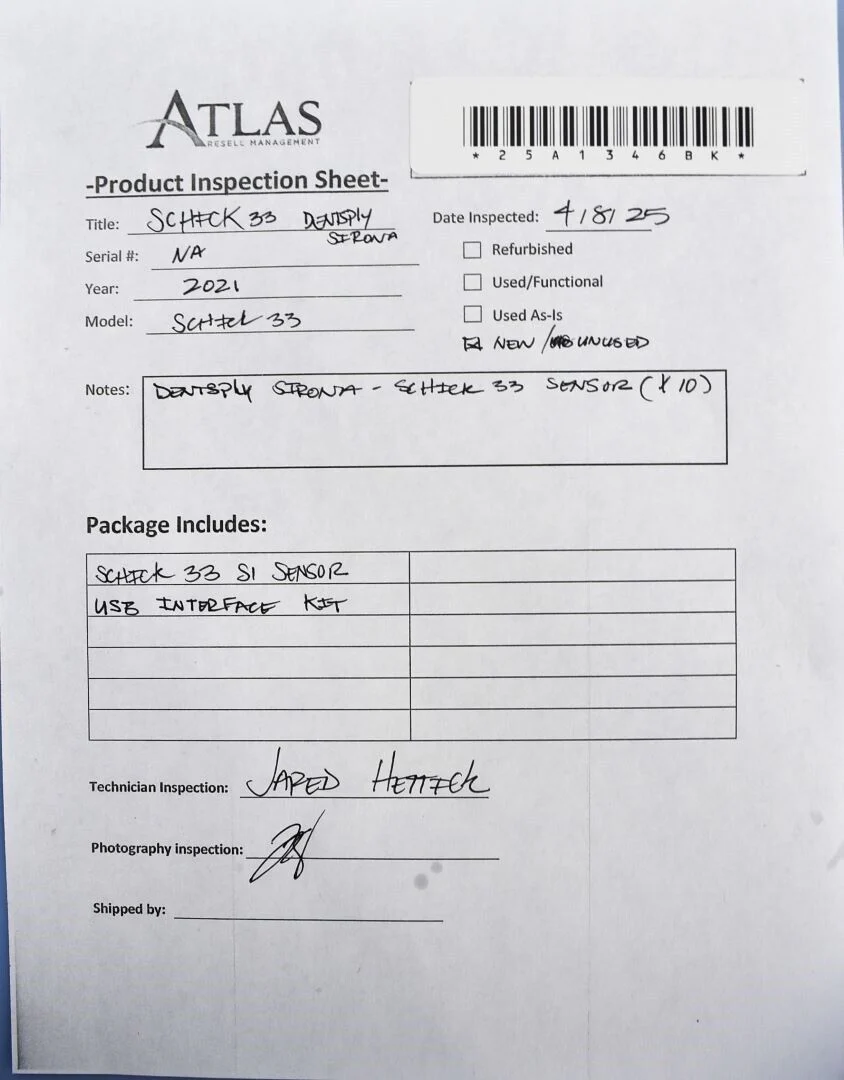 ATLAS
RESELL MANAGEMENT
*25A1346BK*
-Product Inspection Sheet-
Title: SCHICK 33 DENTSPLY
SIRONA
Date Inspected: 4/8/25
Serial #: NA
Refurbished
Year: 2021
Used/Functional
Model: SCHICK 33
Used As-Is
NEW / UNUSED
Notes: DENTSPLY SIRONA - SCHICK 33 SENSOR (X 10)
Package Includes:
SCHICK 33 S1 SENSOR
USB INTERFACE KIT
Technician Inspection: JARED HETTICK
Photography inspection:
Shipped by: